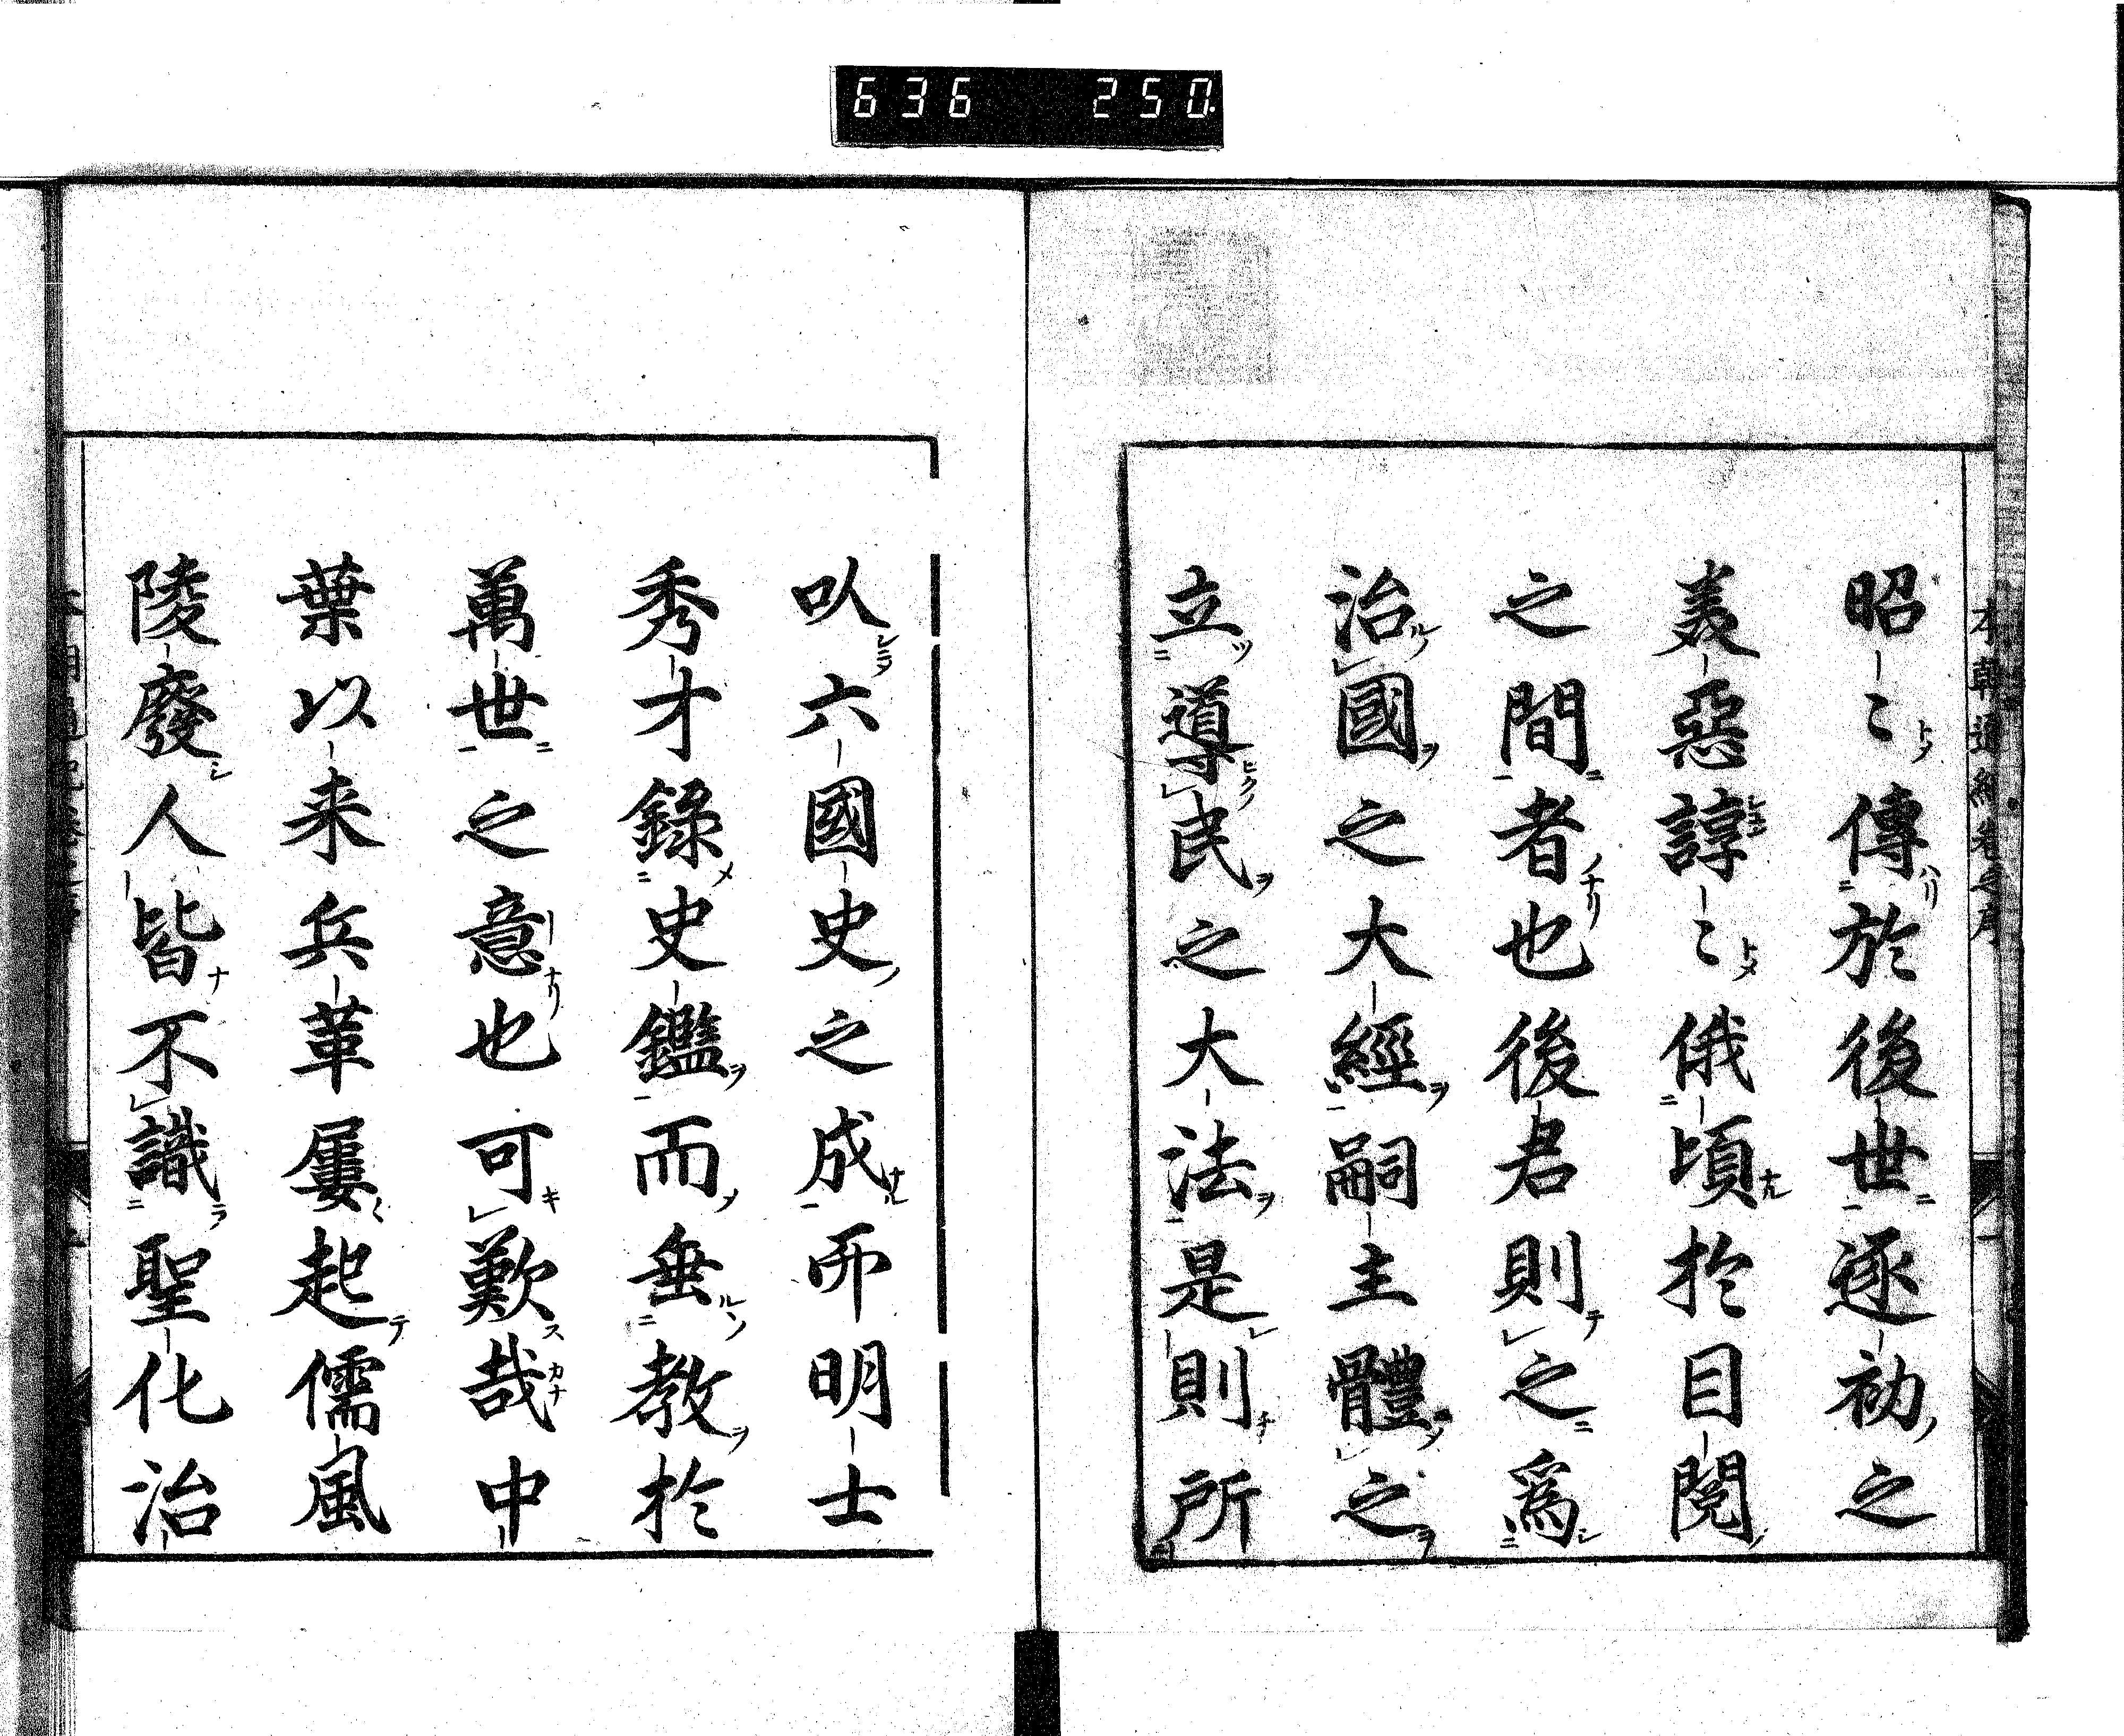 636 250
本朝通紀卷之序
昭〻傳於後世逐初之
美惡諄〻俄頃於目閱
之間者也後君則之爲
治國之大經嗣主體之
立導民之大法是則所
㕥六國史之成而明士
秀才錄史鑑而垂教於
萬世之意也可歎哉中
葉以来兵革屢起儒風
陵廢人皆不識聖化治